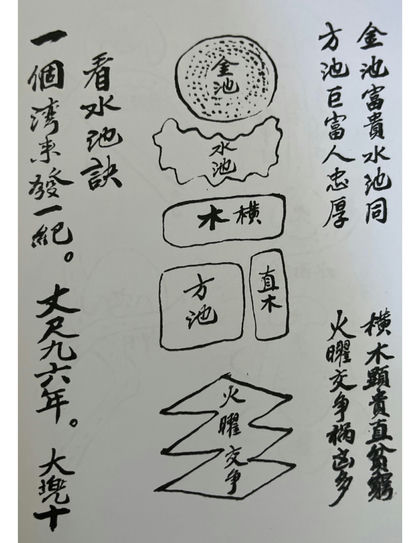 金池富貴水池同
橫木顯貴直貧窮
方池巨富人忠厚
火曜交争禍凶多
金池
水池
橫木
方池
直木
火曜交争
看水池訣
一個湾来發一紀。丈尺九六年。大兜十